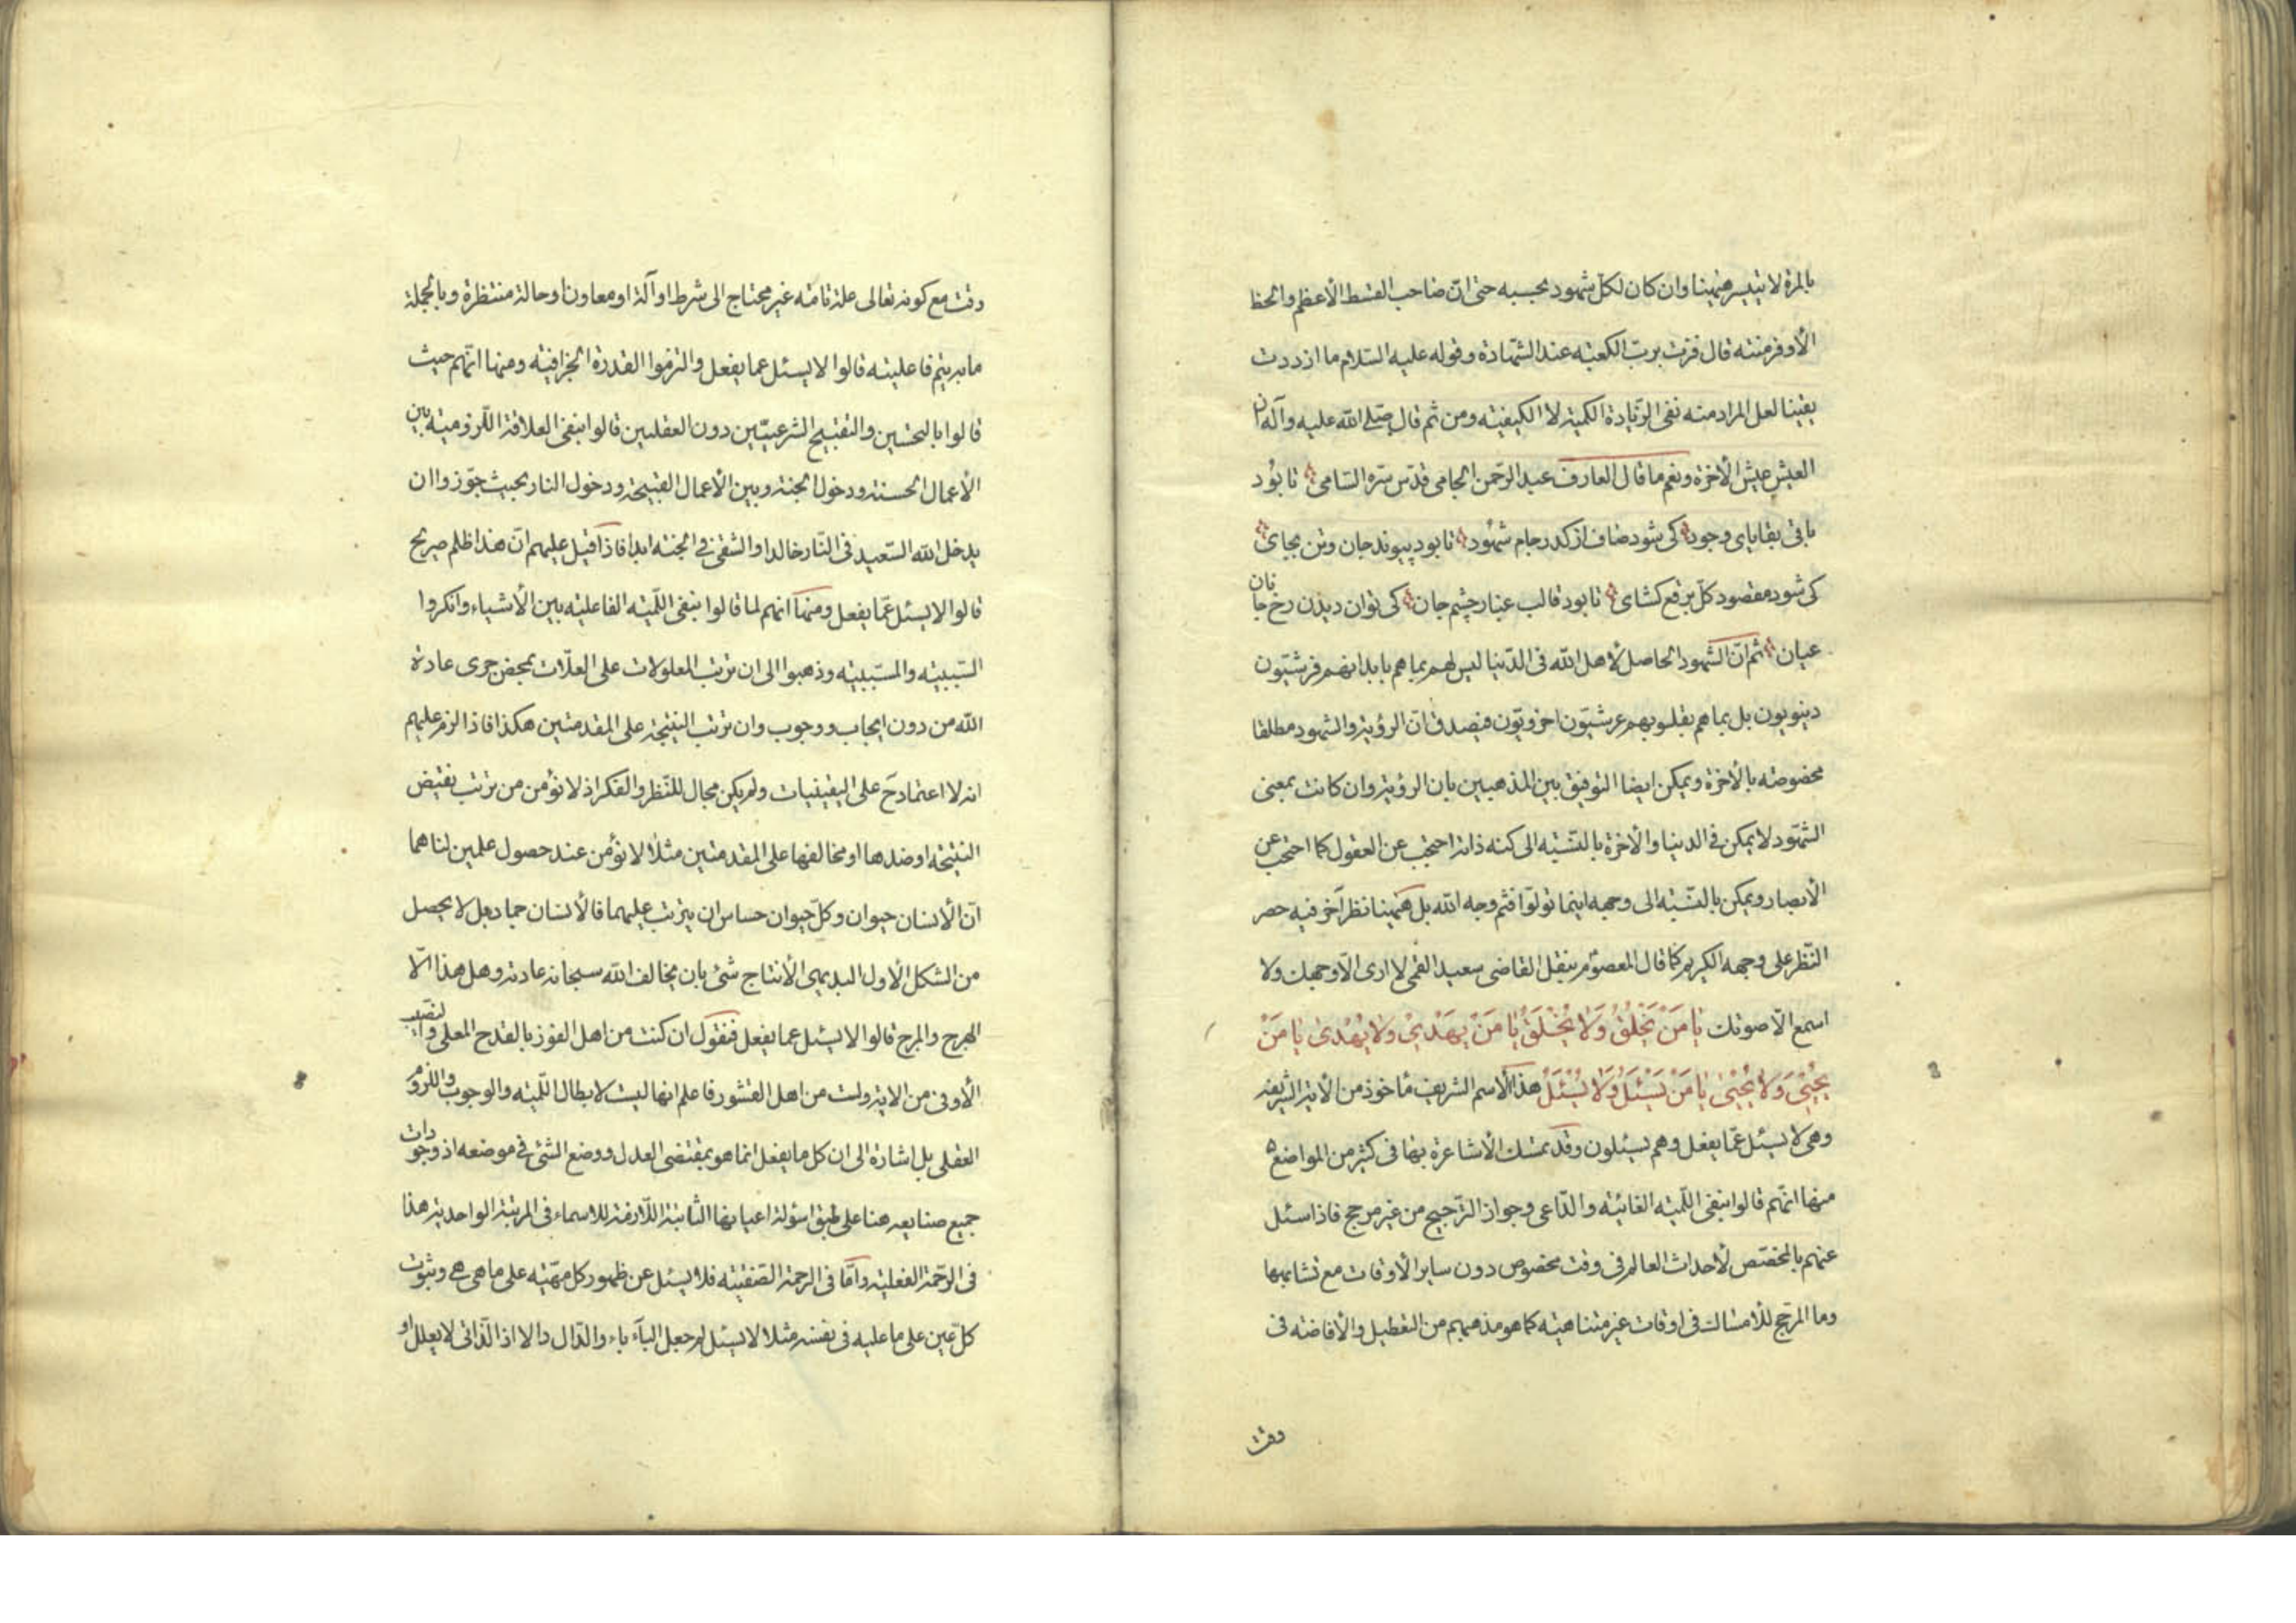 بالمرة لا يتيسر هيهنا وان كان لكل شهود بحسبه حتى ان صاحب القسط الأعظم والحظ
الأوفر منته قال فزت برب الكعبة عند الشهادة وقوله عليه السلام ما ازددت
يقينا لعل المراد منه نفى الزيادة الكمية لا الكيفية ومن ثم قال صلى الله عليه وآله ان
العيش عيش الأخرة ونعم ما قال العارف عبد الرحمن الجامى قدس سره السامى تا بود
باقى بقاياى وجود كى شود صاف از كدر جام شهود تا بود پيوند جان وتن بجاى
كى شود مقصود كل برقع كشاى تا بود قالب غبار چشم جان كى توان ديدن رخ جانان
عيان ثم ان الشهود الحاصل لأهل الله فى الدنيا ليس لهم بما هم بابدانهم فرشيون
دنيويون بل بما هم بقلوبهم عرشيون اخرويون فيصدق ان الرؤية والشهود مطلقا
مخصوصة بالأخرة ويمكن ايضا التوفيق بين المذهبين بان الرؤية وان كانت بمعنى
الشهود لا يمكن فى الدنيا والأخرة بالنسبة الى كنه ذاته احتجب عن العقول كما احتجب عن
الأبصار ويمكن بالنسبة الى وجهه اينما تولوا فثم وجه الله بل هيهنا نظر آخر فيه حصر
النظر على وجهه الكريم كما قال المعصوم بنقل القاضى سعيد القمى لا ارى الا وجهك ولا
اسمع الا صوتك يا من يخلق ولا يخلق يا من يهدى ولا يهدى يا من
يحيى ولا يحيى يا من يسئل ولا يسئل هذا الاسم الشريف مأخوذ من الأية الشريفة
وهى لا يسئل عما يفعل وهم يسئلون وقد تمسك الأشاعرة بها فى كثير من المواضع
منها انهم قالوا بنفى اللمية الغائية والداعى وجواز الترجيح من غير مرجح فاذا سئل
عنهم بالمخصص لأحداث العالم فى وقت مخصوص دون ساير الأوقات مع تشابهها
وما المرجح للأمساك فى اوقات غير متناهية كما هو مذهبهم من التعطيل والأفاضة فى
وقت
وقت مع كونه تعالى علة تامة غير محتاج الى شرط او آلة او معاون او حالة منتظرة وبالجملة
ما به يتم فاعليته قالوا لا يسئل عما يفعل والتزموا القدرة الجزافية ومنها انهم حيث
قالوا بالتحسين والتقبيح الشرعيين دون العقليين قالوا بنفى العلاقة اللزومية بين
الأعمال الحسنة ودخول الجنة وبين الأعمال القبيحة ودخول النار بحيث جوزوا ان
يدخل الله السعيد فى النار خالدا والشقى فى الجنة ابدا فاذا قيل عليهم ان هذا ظلم صريح
قالوا لا يسئل عما يفعل ومنها انهم لما قالوا بنفى اللمية الفاعلية بين الأشياء وانكروا
السببية والمسببية وذهبوا الى ان ترتب المعلولات على العلات بمحض جرى عادة
الله من دون ايجاب ووجوب وان ترتب النتيجة على المقدمتين هكذا فاذا الزم عليهم
انه لا اعتماد ح على اليقينيات ولم يكن مجال للنظر والفكر اذ لا نؤمن من ترتب نقيض
النتيجة او ضدها او مخالفها على المقدمتين مثلا لا نؤمن عند حصول علمين لنا هما
ان الأنسان حيوان وكل حيوان حساس ان يترتب عليهما فالأنسان جماد بل لا يحصل
من الشكل الأول البديهى الأنتاج شئ بان يخالف الله سبحانه عادته وهل هذا الا
الهرج والمرج قالوا لا يسئل عما يفعل فنقول ان كنت من اهل الفوز بالقدح المعلى والنصيب
الأوفى من الاية ولست من اهل القشور فاعلم انها ليست لابطال اللمية والوجوب واللزوم
العقلى بل اشارة الى ان كل ما يفعل انما هو بمقتضى العدل ووضع الشئ فى موضعه اذ وجودات
جميع صنايعه هنا على طبق اسؤلة اعيانها الثابتة اللازمة للاسماء فى المرتبة الواحدية هذا
فى الرحمة الفعلية واما فى الرحمة الصفتية فلا يسئل عن ظهور كل مهية على ما هى هى وثبوت
كل عين على ما عليه فى نفسه مثلا لا يسئل لم جعل الباء باء والدال دالا اذ الذاتى لا يعلل او